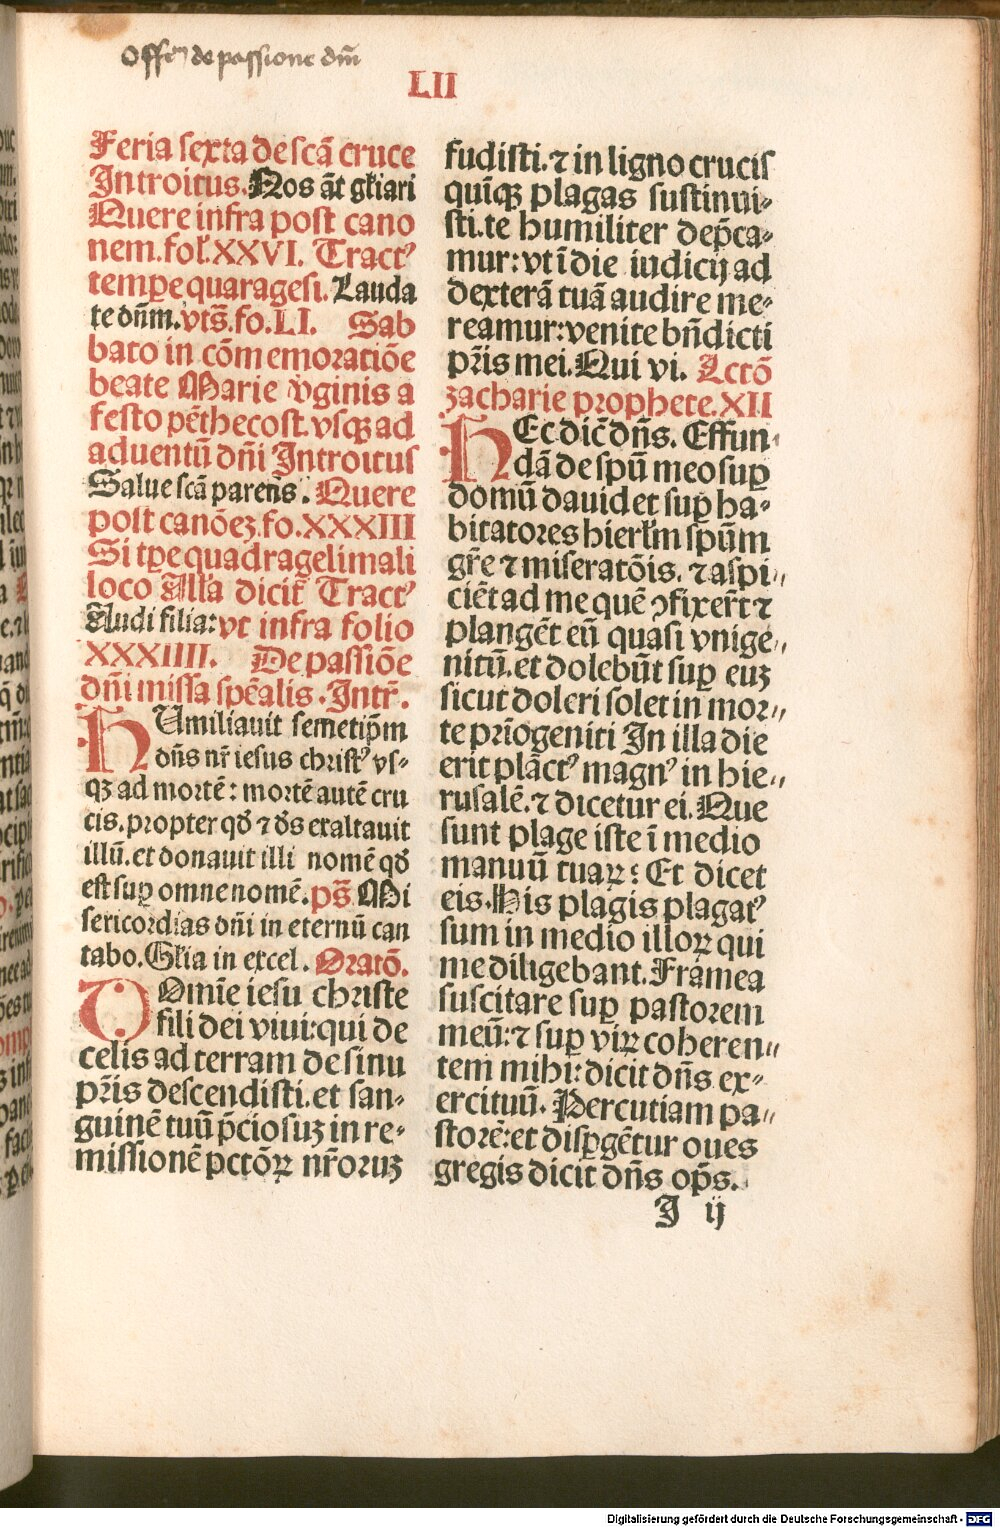 Offm de passione dñi
LII
Feria sexta de scã cruce
Introitus. Nos ãt gl̃iari
Quere infra post cano
nem. fol. XXVI. Tractꝰ
temꝑe quaragesi. Lauda
te dñm. vts̃. fo. LI. Sab
bato in cõmemoratiõe
beate Marie v̉ginis a
festo pẽthecost. vsqꝫ ad
aduentũ dñi Introitus
Salue scã parens. Quere
post canõeꝫ. fo. XXXIII
Si tꝑe quadragesimali
loco Alla dicit̃ Tractꝰ
Audi filia: vt infra folio
XXXIIII. De passiõe
dñi missa spẽalis. Intr̃.
HUmiliauit semetip̃m
dñs nr̃ iesus christꝰ vs⸗
qꝫ ad mortẽ: mortẽ autẽ cru
cis. propter qđ ⁊ đs exaltauit
illũ. et donauit illi nomẽ qđ
est suꝑ omne nomẽ. ps̃ Mi
sericordias dñi in eternũ can
tabo. Gl̃ia in excel. Oratõ.
DOmĩe iesu christe
fili dei viui: qui de
celis ad terram de sinu
pr̃is descendisti. et san⸗
guinẽ tuũ p̃ciosuꝫ in re⸗
missionẽ pctõꝝ nr̃oruꝫ
fudisti. ⁊ in ligno crucis
quĩqꝫ plagas sustinui⸗
sti. te humiliter dep̃ca⸗
mur: vt ĩ die iudicij ad
dexterã tuã audire me⸗
reamur: venite bñdicti
pr̃is mei. Qui vi. Lctõ
zacharie prophete. XII
HEc dic̃ dñs. Effun⸗
dã de spũ meo suꝑ
domũ dauid et suꝑ ha⸗
bitatores hierl̃m spũm
gr̃e ⁊ miseratõis. ⁊ aspi⸗
ciẽt ad me quẽ ꝯfixer̃t ⁊
plangẽt eũ quasi vnige⸗
nitũ. et dolebũt suꝑ euꝫ
sicut doleri solet in mor⸗
te prĩogeniti In illa die
erit plãctꝰ magnꝰ in hie⸗
rusalẽ. ⁊ dicetur ei. Que
sunt plage iste ĩ medio
manuũ tuaꝝ: Et dicet
eis. His plagis plagatꝰ
sum in medio illoꝝ qui
me diligebant. Framea
suscitare suꝑ pastorem
meũ: ⁊ suꝑ viꝝ coheren⸗
tem mihi: dicit dñs ex⸗
ercituũ. Percutiam pa⸗
storẽ: et disꝑgẽtur oues
gregis dicit dñs op̃s.
I ij
Digitalisierung gefördert durch die Deutsche Forschungsgemeinschaft - DFG